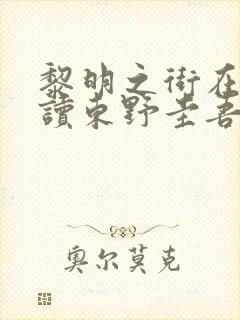 黎明之街在
讀東野圭吾
奥尔莫克